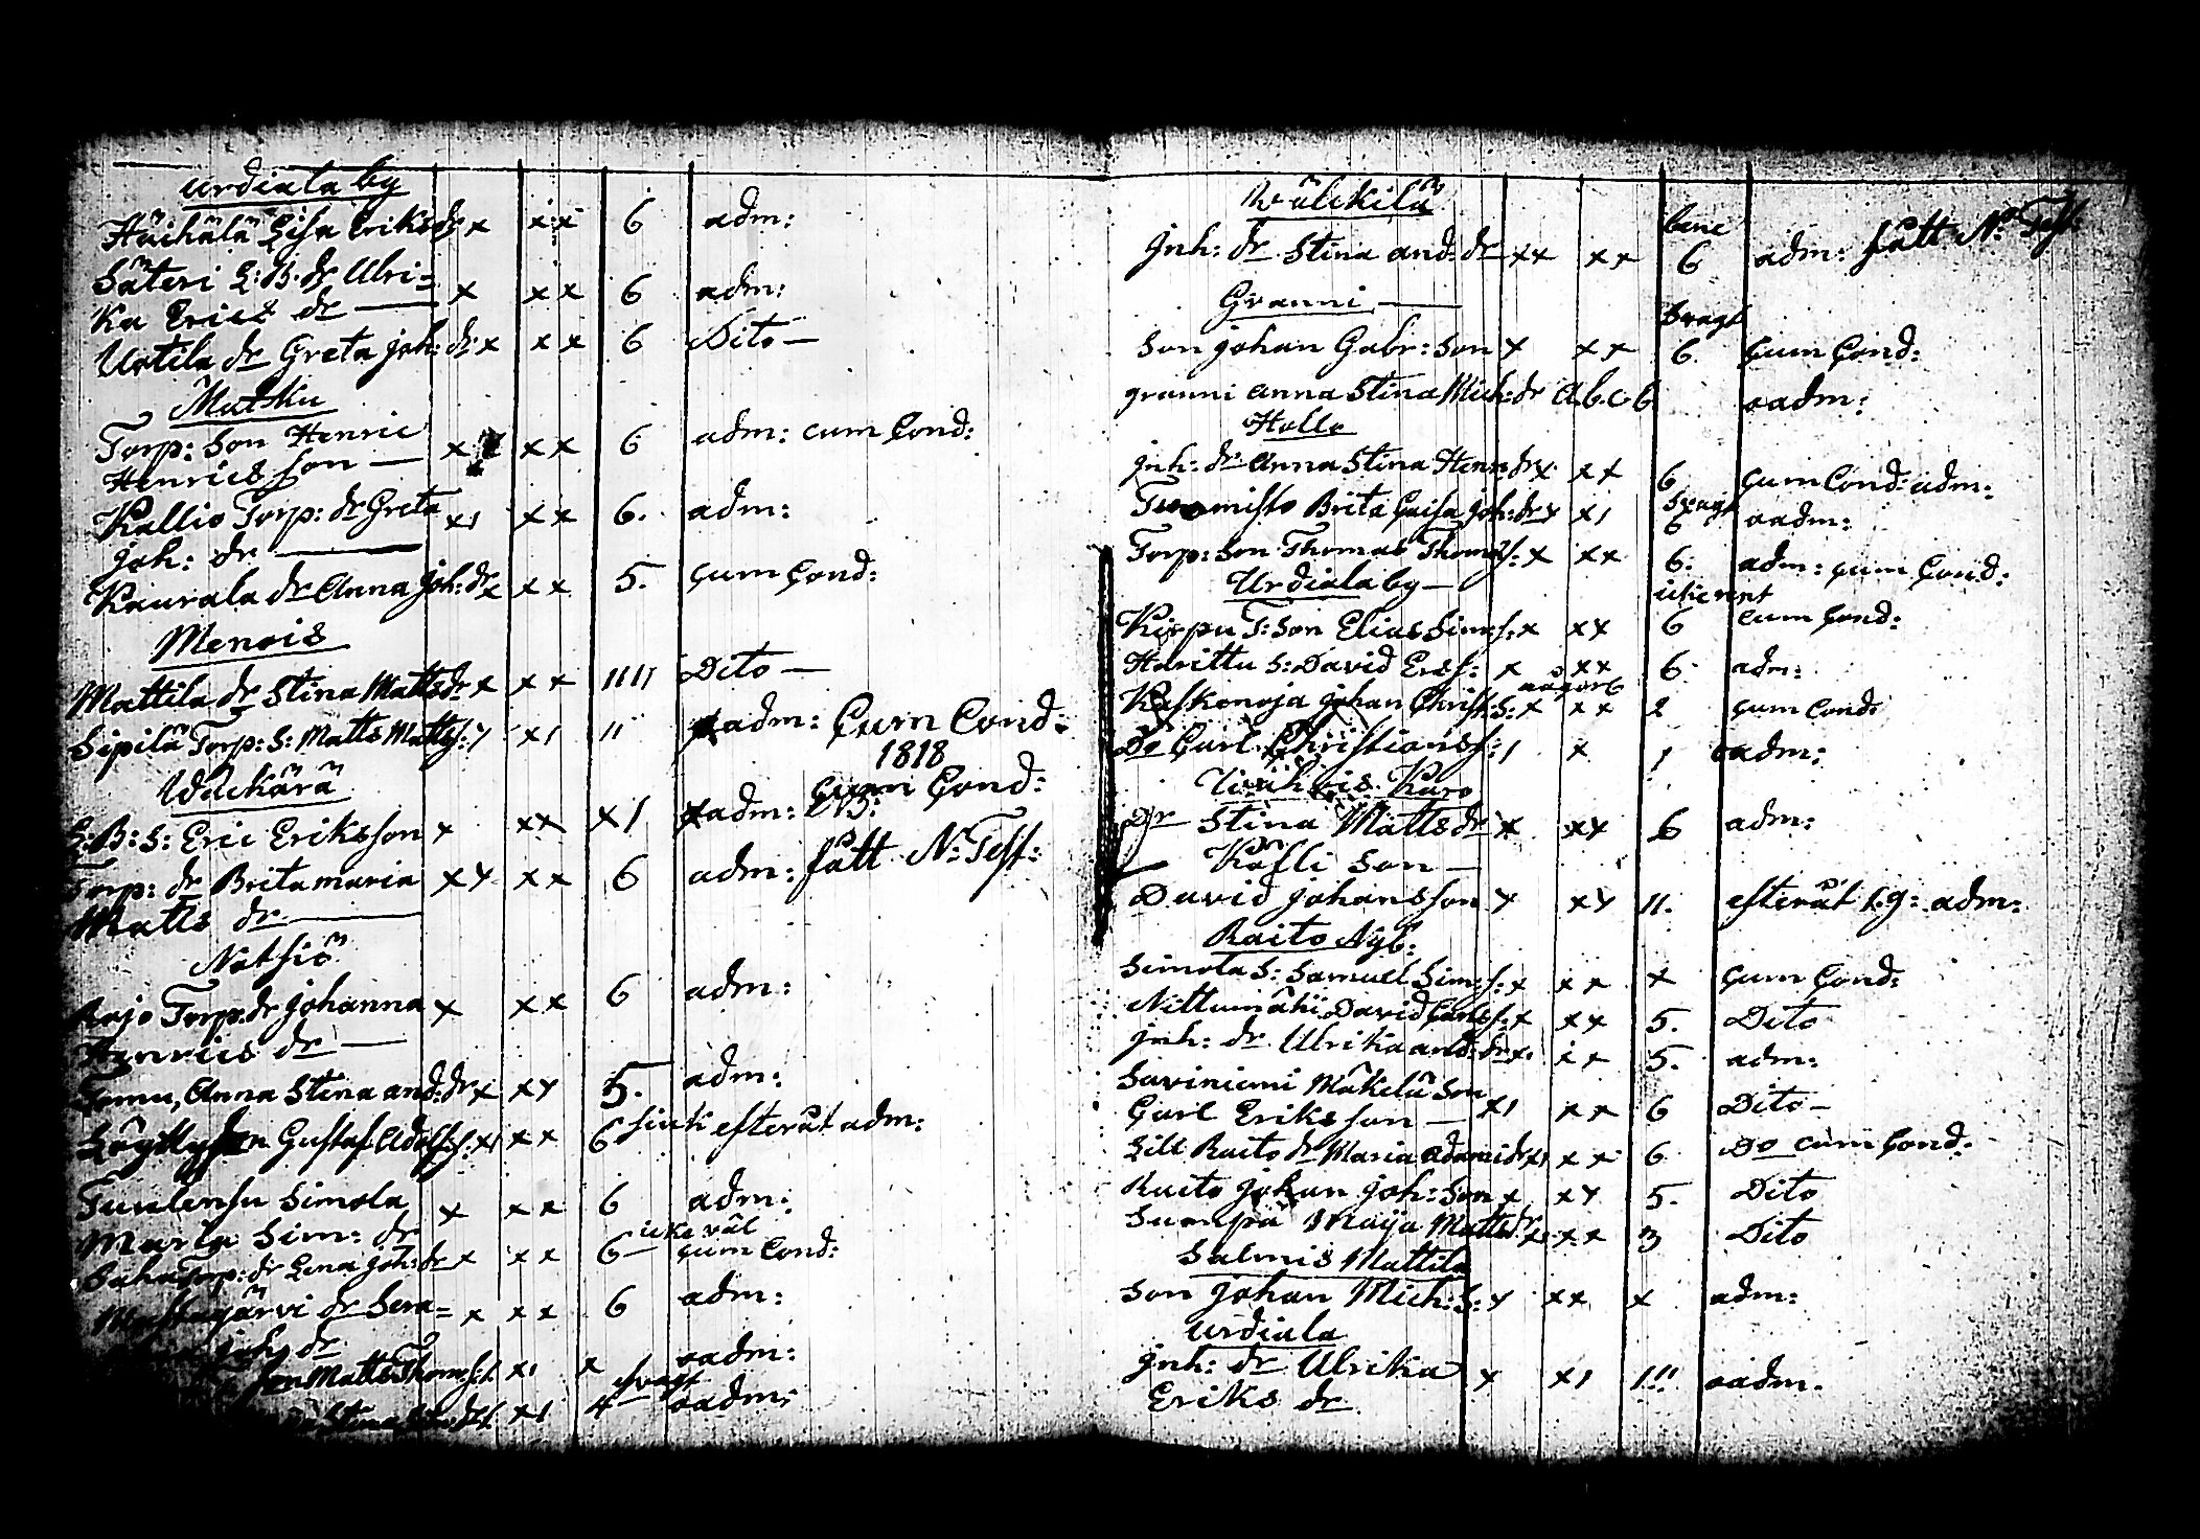 Urdiala by
Häihälä Lisa Eriks dr x xx 6 adm:
Säteri L:B: dr Ulri=
ka Erics dr — x xx 6 adm:
Uotila dr Greta Joh: dr x xx 6 Dito —
Matku
Torp: Son Henric
Henrics son — x xx 6 adm: cum Cond:
Kallio Torp: dr Greta
Joh: dr — x1 xx 6. adm:
Kaurala dr Anna Joh: dr x xx 5. cum Cond:
Menois
Mattila dr Stina Matts dr x xx 1111 Dito —
Sipilä Torp: S: Matts Matts: x x1 11 adm: Cum Cond:
1818
Wackärä cum Cond:
S:B:S: Eric Eriksson x xx x1 adm:
Torp: dr Brita maria xx xx 6 adm: fått N: Test:
Matts dr —
Notsiö
Rajo Torp: dr Johanna x xx 6 adm:
Henrics dr —
Anna Stina and: dr x xx 5. adm:
Gustaf Adolfs: x1 xx 6 efteråt adm:
Tuulensu Simola
Maria Sim: dr x xx 6 adm:
icke väl
Torp: dr Lena Joh: dr x xx 6 — cum Cond:
dr Sera= x xx 6 adm:
Joh: dr
Matts Thoms: x1 x oadm:
svagt
x1 4 oadm:
Wälkilä
bene
Jnh: dr Stina and: dr xx xx 6 adm: fått N: Test
Granni —
svagt
Son Johan Gabr: Son x xx 6. cum Cond:
granni Anna Stina Mich: dr a.b.c. 6 oadm:
Hollo
Jnh: dr Anna Stina Henr: dr x xx 6 cum Cond: adm:
svagt
Brita Caisa Joh: dr x x1 6 oadm:
Torp: Son Thomas Thoms s: x xx 6: adm: cum Cond:
Urdiala by —
Kirpu T: Son Elias Sim: s: x xx 6 cum Cond:
Harittu S: David Ers s: x xx 6. adm:
någorl
Johan Christ: S: x xx 2 cum Cond:
Do Carl Christians s: 1 x 1 oadm:
Karo
Dr Stina Matts dr x xx 6 adm:
Son —
David Johansson x xx 11. efteråt adm:
Raito Nyb:
Simola S: Samuel Sim: s: x xx x cum Cond:
Nittumäki David Carls s: x xx 5. Dito
Jnh: dr Ulrika and: dr x xx 5. adm:
Saviniemi Mäkelä Son
Carl Eriksson — x1 xx 6 Dito —
Lill Raito dr Maria Adami dr x1 xx 6 Do cum Cond:
Raito Johan Joh: Son x xx 5. Dito
Maija Matts dr xx 3 Dito
Salmis Mattila
Son Johan Mich: S: x xx x adm:
Urdiala
Jnh: dr Ulrika x x1 111 oadm.
Eriks dr